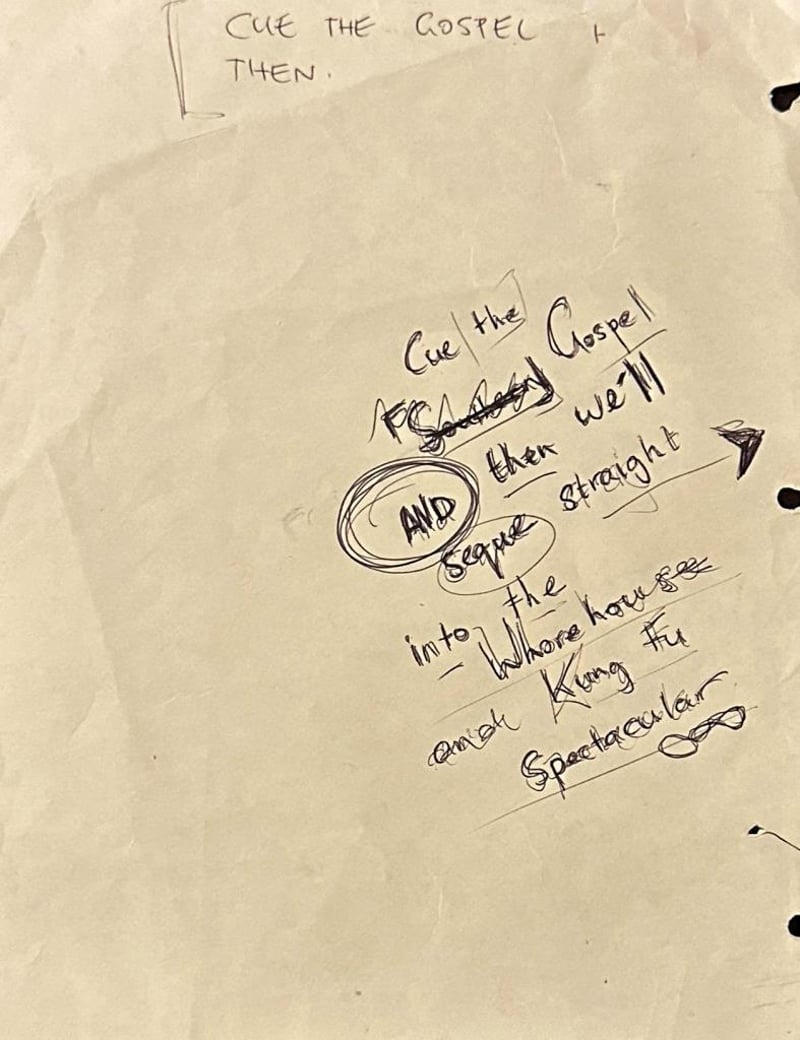 CUE THE GOSPEL +
THEN.
Cue the Gospel
AND then we'll
segue straight
into the
Whorehouse
Kung Fu
Spectacular